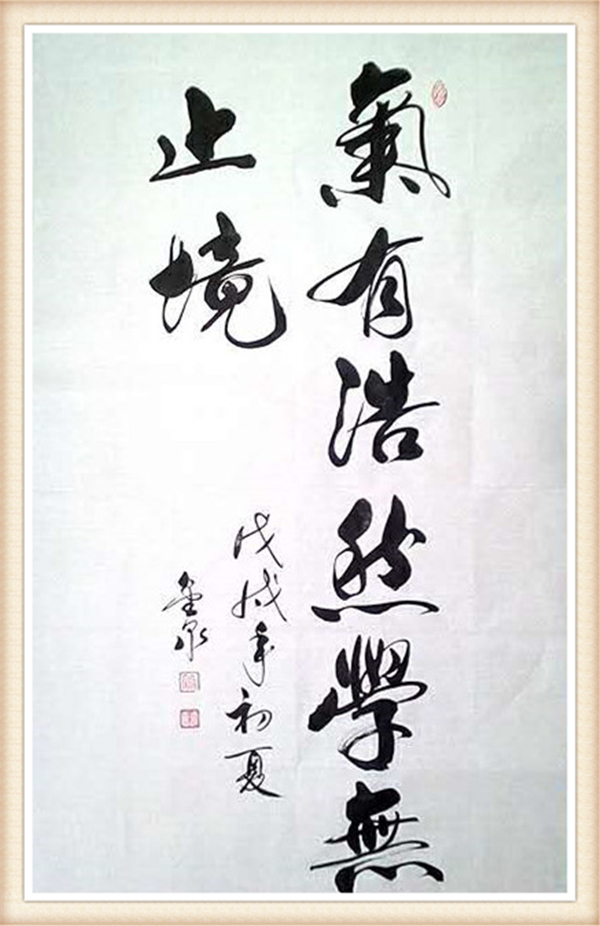 氣有浩然學無
止境
戊戌年初夏
金泉